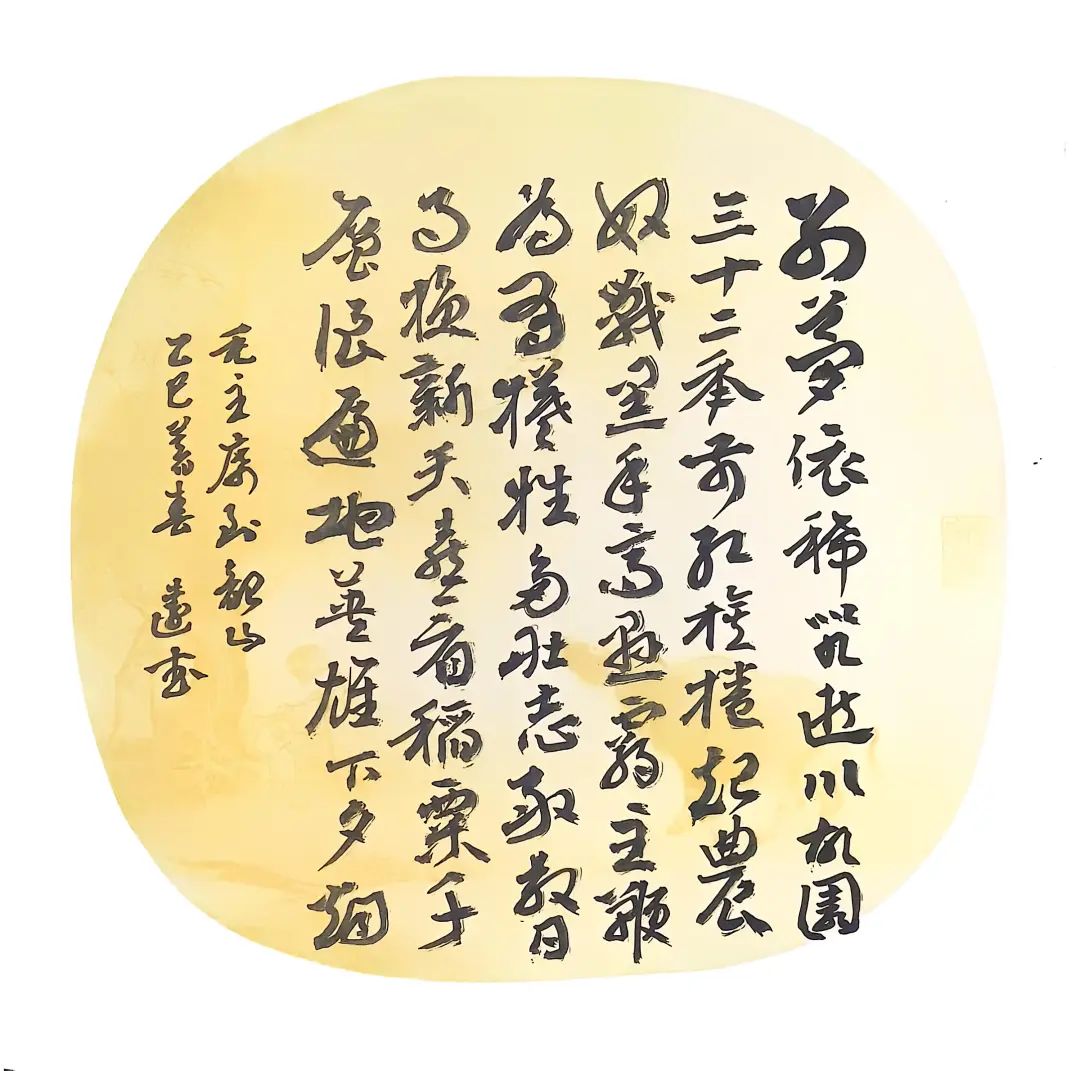 别夢依稀咒逝川故園
三十二年前红旗捲起農
奴戟黑手高悬霸主鞭
为有犧牲多壮志敢教日
月换新天喜看稻粟千
重浪遍地英雄下夕烟
毛主席到韶山
乙巳暮春